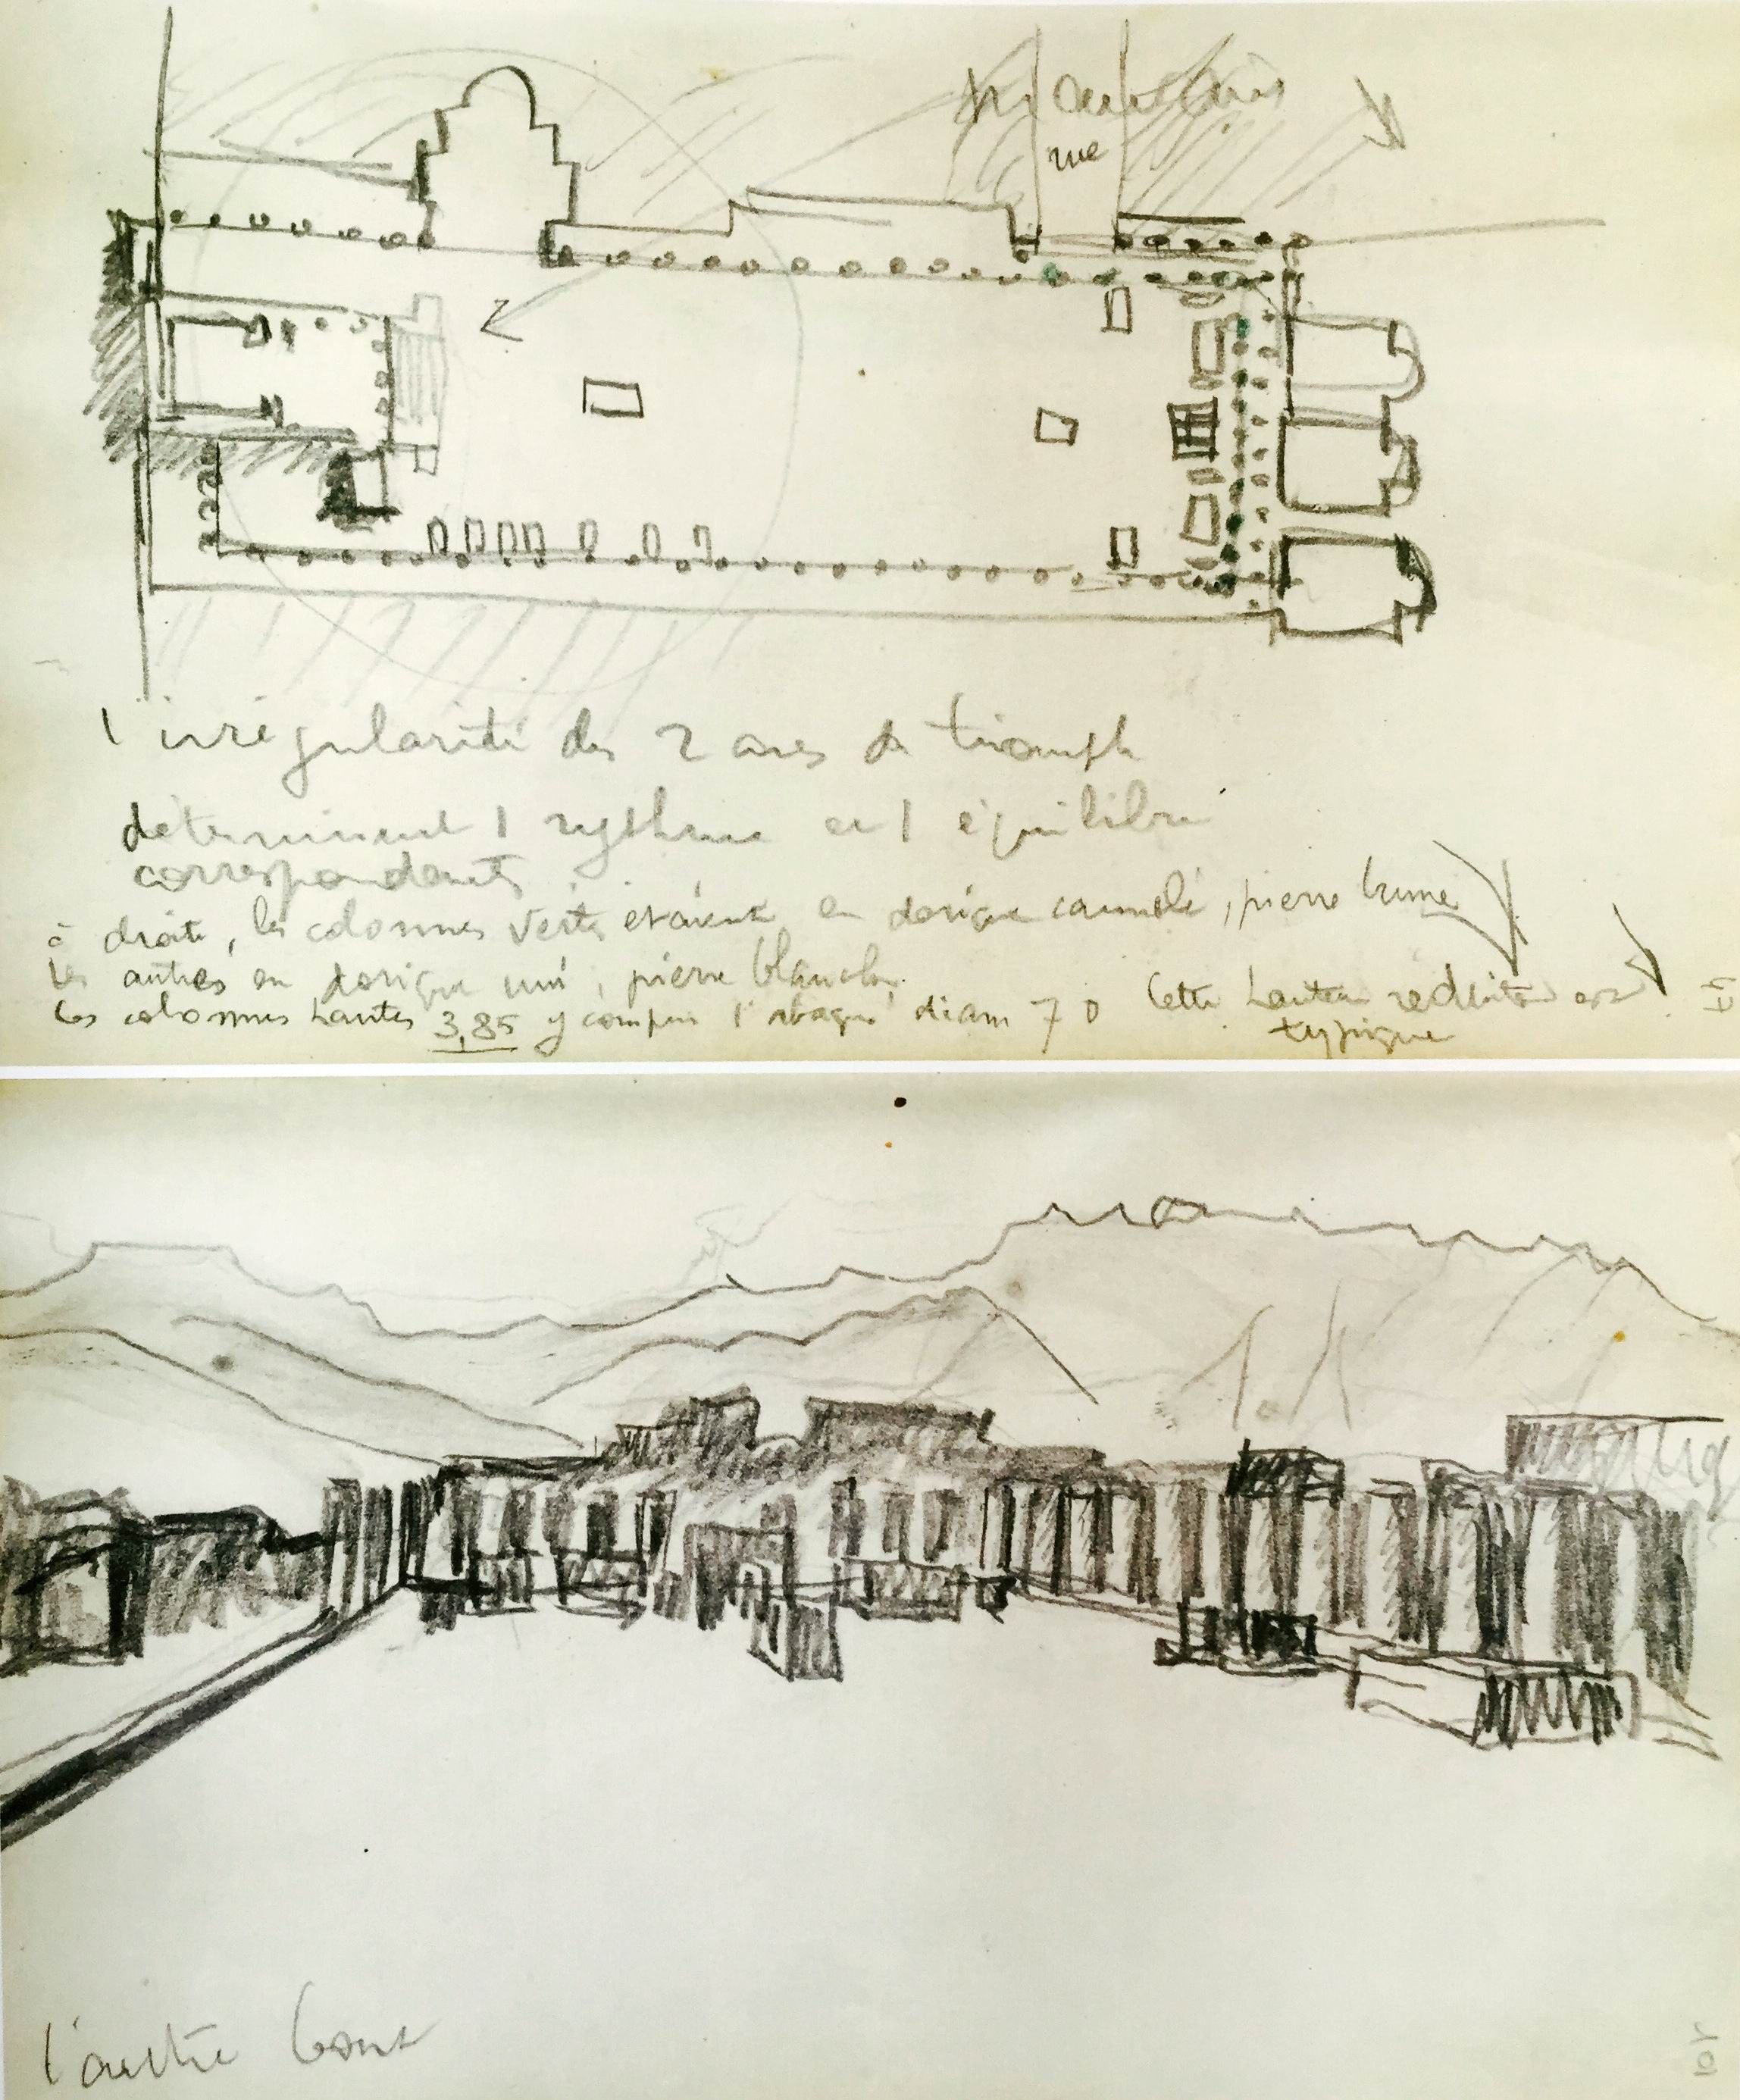 rue
l'irrégularité des 2 arcs de triomph
déterminent 1 rythme et 1 équilibre
correspondants
à droite, les colonnes vertes etaient en dorique cannelé, pierre brune
les autres en dorique uni, pierre blanche
les colonnes hautes 3,85 y compris l'abaque diam 70 Cette hauteur réduite est
typique
l'autre bout